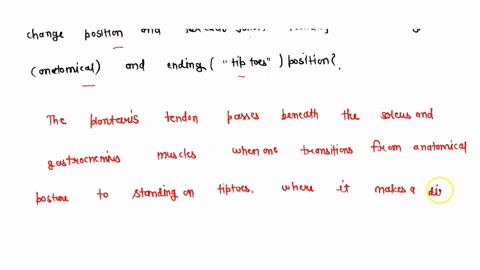 change position and
(anatomical) and ending ("tip toes") position?.
The plantaris tendon passes beneath the soleus and
gastrocnemius muscles when one transitions from anatomical
posture to standing on tiptoes, where it makes a di